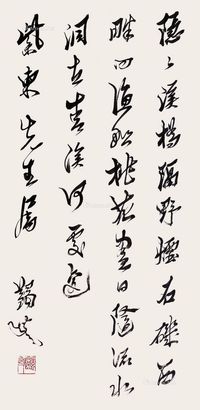 隱〻溪橋隔野煙石磯西
畔問漁船桃花盡日隨流水
洞在青溪何處邊
紫東先生屬
蠲叟